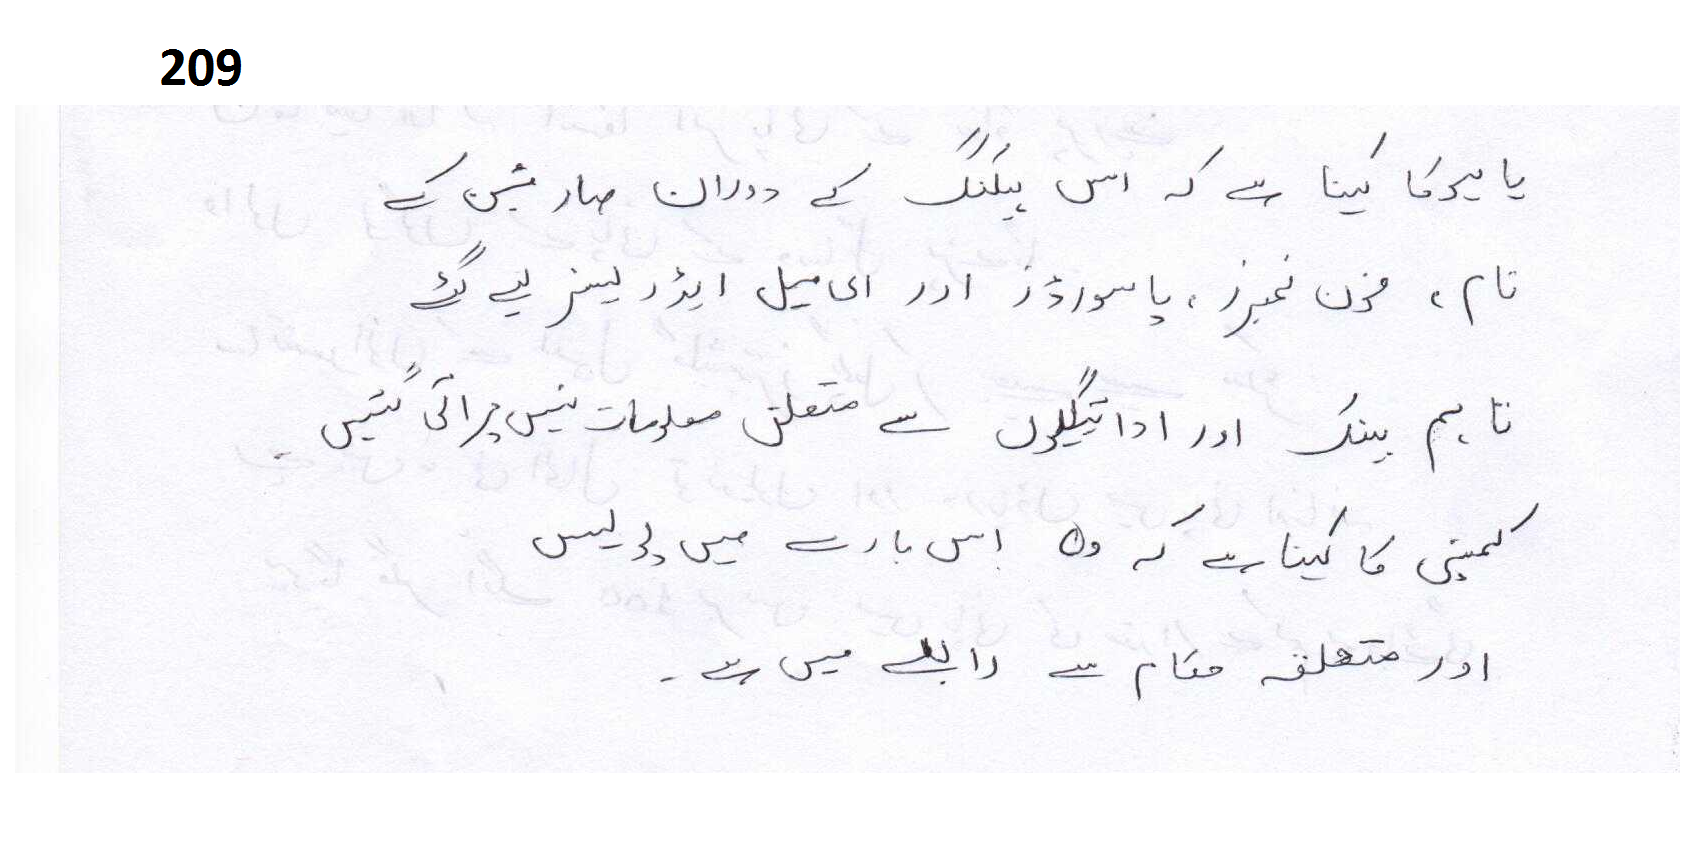 209
یاہو کا کہنا ہے کہ اس ہیکنگ کے دوران صارفین کے
نام، فون نمبرز، پاسورڈز اور ای میل ایڈریسز لیے گئے
تاہم بینک اور ادائیگیوں سے متعلق معلومات نہیں چرائی گئیں۔
کمپنی کا کہنا ہے کہ وہ اس بارے میں پولیس
اور متعلقہ حکام سے رابطے میں ہے۔